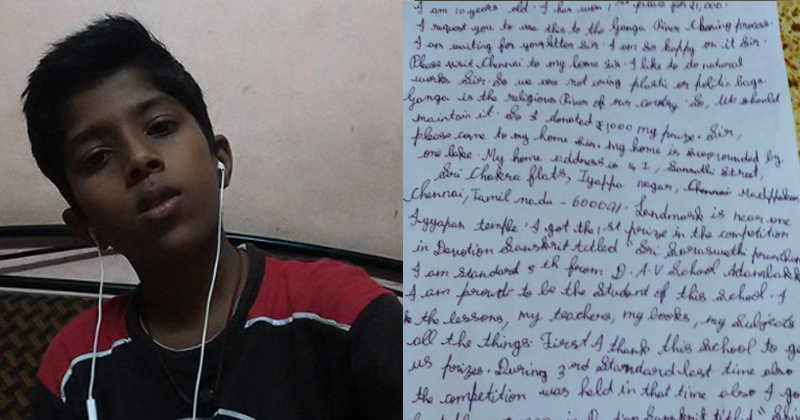 I am 10 years old. I have won 1st prize for ₹1,000.
I request you to use this to the Ganga River Cleaning process.
I am waiting for your letter Sir. I am so happy on it Sir.
Please visit Chennai to my home Sir. I like to do natural
works Sir. So we are not using plastic or politin bags.
Ganga is the religious River of our country. So, We should
maintain it. So I donated ₹1000 my prize. Sir,
please come to my home Sir. my home is surrounded by
one lake. My home address is 4 I, Street,
Sri Chakra flats, Iyappa nagar, Chennai
Chennai, Tamil nadu - 600091. Landmark is near one
Iyyapan temple. I got the 1st prize in the competition
in Devotion Sanskrit titled "Sri Saraswathi
I am standard 5th from D.A.V School
I am proud to be the Student of this school. I
the lessons, my teachers, my books, my subjects
all the things. First I thank this school to
us prizes. During 3rd Standard last time also
the competition was held in that time also I